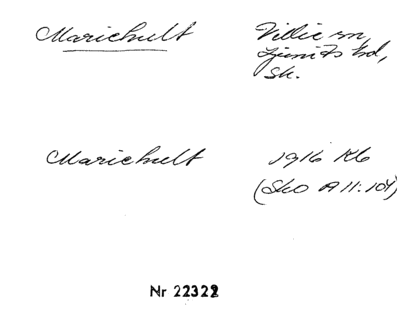 Mariehult Villie sn,
Ljunits hd,
Sk.
Mariehult 1916 Kb
(SkO A 11:104)
Nr 22322